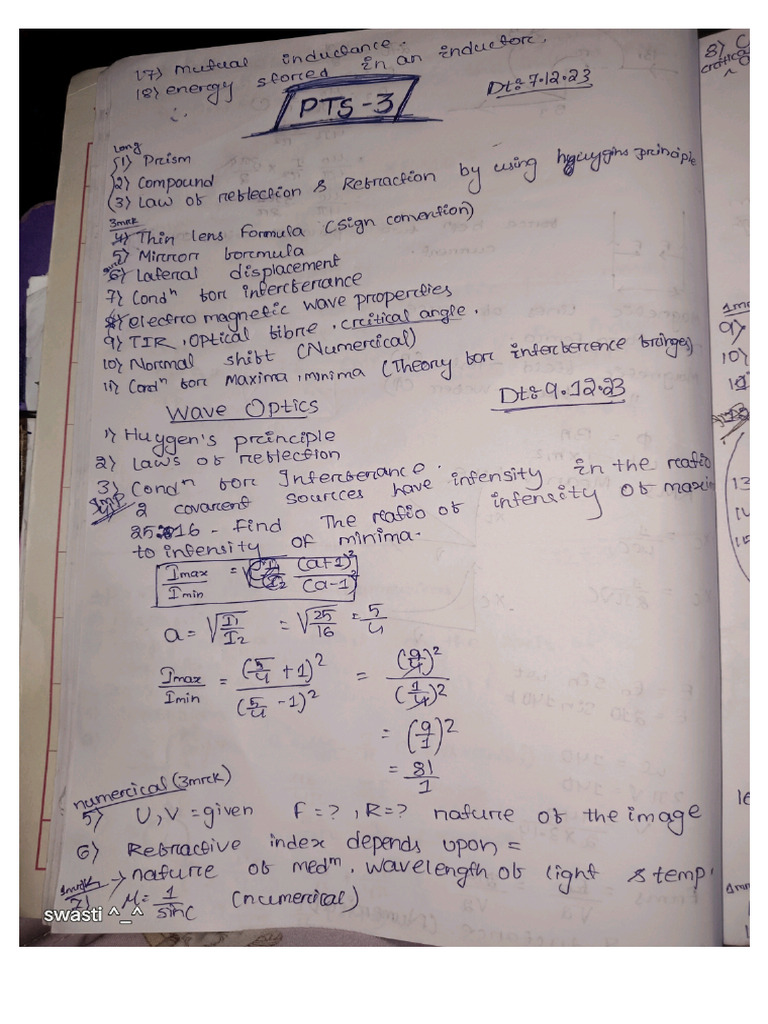 17) Mutual inductance.
18) energy stored in an inductor.
PTS-3
Dt: 7.12.23
long
(1) Prism
(2) Compound
(3) Law of reflection & Refraction by using hguygins principle
3mrk
4) Thin lens Formula (Sign convention)
5) Mirror formula
6) Lateral displacement
7) Condⁿ for interferance
8) electro magnetic wave properties
9) TIR, optical fibre, critical angle.
10) Normal shift (Numerical)
11) Condⁿ for Maxima, minima (Theory for interference fringes)
Wave Optics
Dt: 9.12.23
1) Huygen's principle
2) Laws of reflection
3) Condⁿ for Interferance.
Imp
4) 2 covarent sources have intensity in the ratio
25:16 - find The ratio of intensity of maxim
to intensity of minima.
Imax/Imin = (a+1)²/(a-1)²
a = √I1/I2 = √25/16 = 5/4
Imax/Imin = (5/4 + 1)²/(5/4 - 1)² = (9/4)²/(1/4)²
= (9/1)²
= 81/1
numerical (3mrk)
5) U, V = given F = ?, R = ? nature of the image
6) Refractive index depends upon =
→ nature of medᵐ, wavelength of light & temp.
1mrk
7) μ = 1/sinC (numerical)
swasti ^_^
8) C
critical
1m
9)
10)
13
14
15
16
1mr